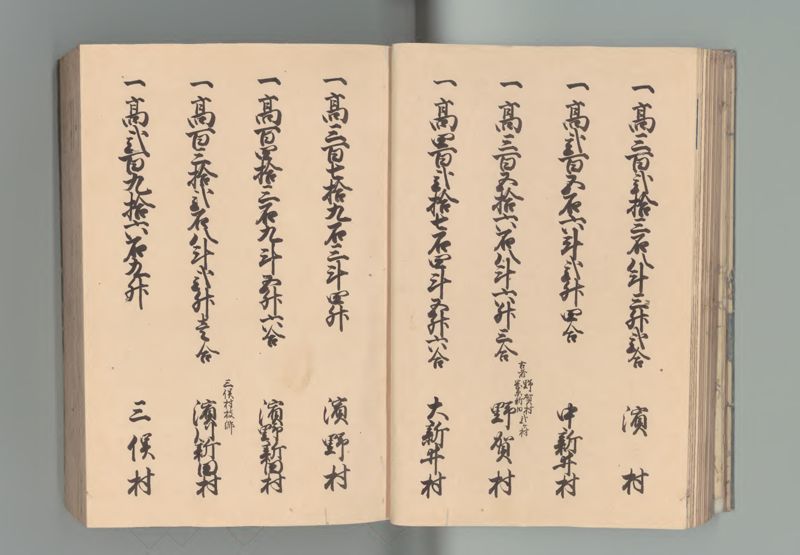 一高三百弐拾三石八斗三升弐合 濱村
一高弐百五石六斗弐升四合 中新井村
一高三百五拾六石八斗六升三合 野賀村
一高四百弐拾七石四斗五升六合 大新井村
一高三百七拾九石三斗四升 濱野村
一高百四拾三石九斗五升六合 濱野新田村
三俣村枝郷
一高百三拾弐石八斗弐升壱合 濱新田村
一高弐百九拾六石九升 三俣村